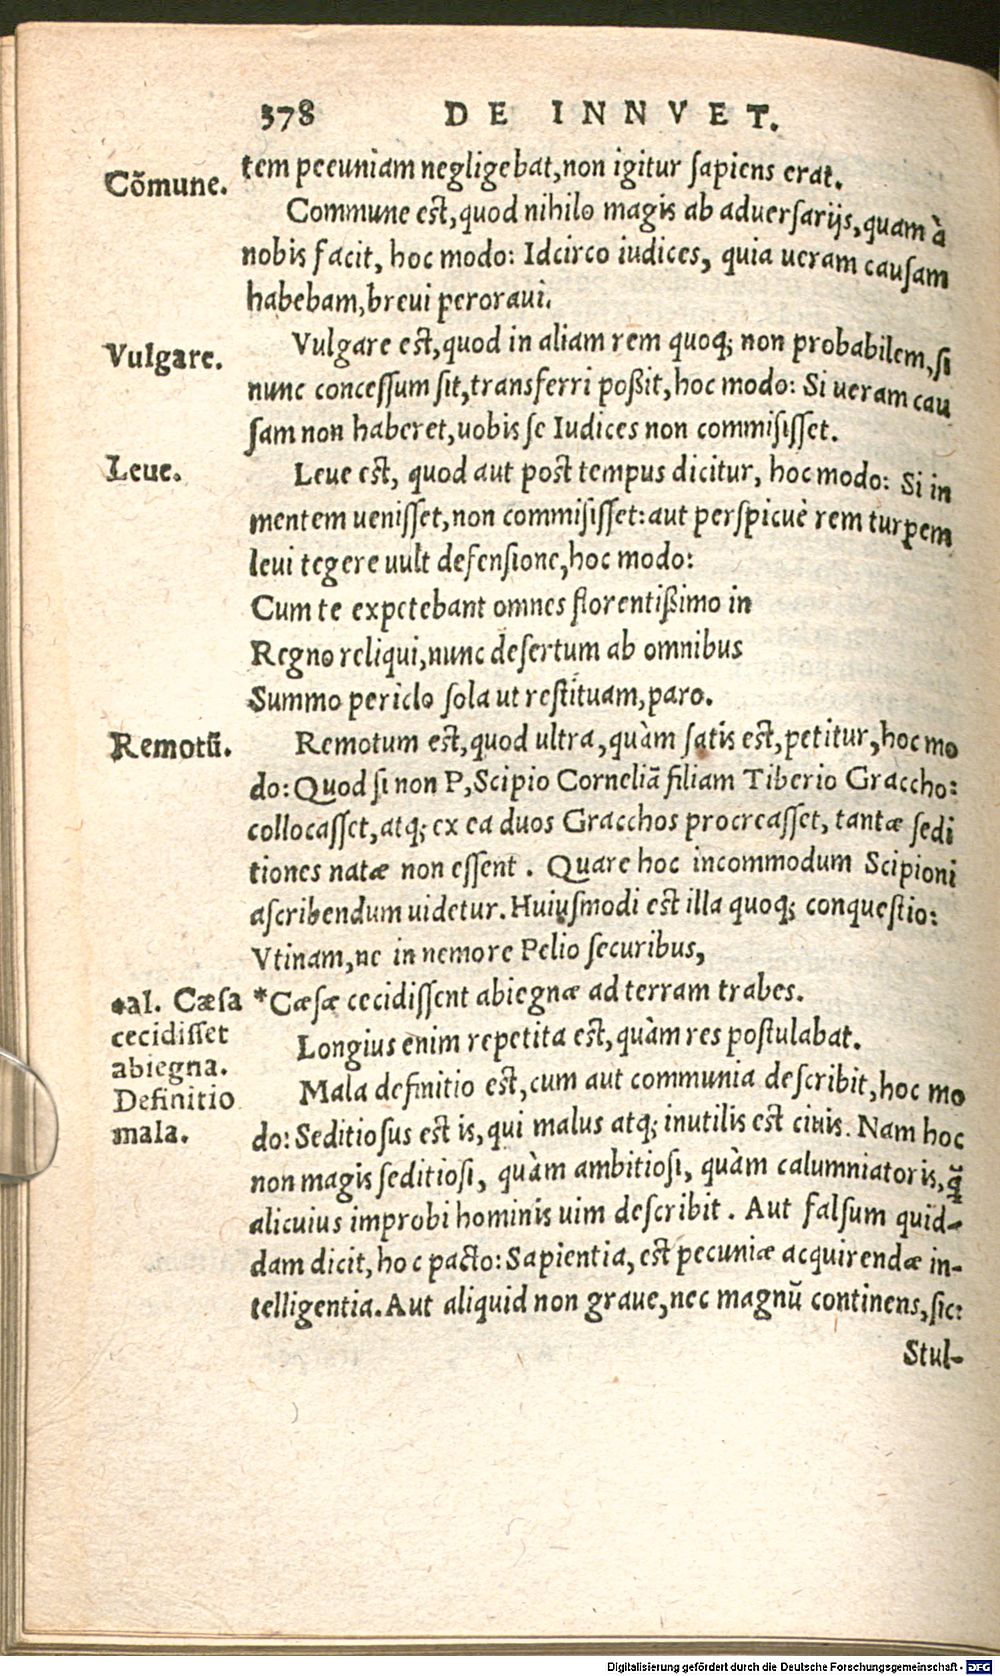 378 DE INNVET.
tem pecuniam negligebat, non igitur ſapiens erat.
Cõmune.
Commune eſt, quod nihilo magis ab aduerſarijs, quam à
nobis facit, hoc modo: Idcirco iudices, quia ueram cauſam
habebam, breui peroraui.
Vulgare.
Vulgare eſt, quod in aliam rem quoq; non probabilem, ſi
nunc conceſſum ſit, transferri poßit, hoc modo: Si ueram cau
ſam non haberet, uobis ſe Iudices non commiſiſſet.
Leue.
Leue eſt, quod aut poſt tempus dicitur, hoc modo: Si in
mentem ueniſſet, non commiſiſſet: aut perſpicuè rem turpem
leui tegere uult defenſione, hoc modo:
Cum te expetebant omnes florentißimo in
Regno reliqui, nunc deſertum ab omnibus
Summo periclo ſola ut reſtituam, paro.
Remotũ.
Remotum eſt, quod ultra, quàm ſatis eſt, petitur, hoc mo
do: Quod ſi non P, Scipio Corneliã filiam Tiberio Graccho:
collocaſſet, atq; ex ea duos Gracchos procreaſſet, tantæ ſedi
tiones natæ non eſſent. Quare hoc incommodum Scipioni
aſcribendum uidetur. Huiuſmodi eſt illa quoq; conqueſtio:
Vtinam, ne in nemore Pelio ſecuribus,
*Cæſæ cecidiſſent abiegnæ ad terram trabes.
*al. Cæſa
cecidiſſet
abiegna.
Longius enim repetita eſt, quàm res poſtulabat.
Definitio
mala.
Mala definitio eſt, cum aut communia deſcribit, hoc mo
do: Seditioſus eſt is, qui malus atq; inutilis eſt ciuis. Nam hoc
non magis ſeditioſi, quàm ambitioſi, quàm calumniatoris, q̃
alicuius improbi hominis uim deſcribit. Aut falſum quid-
dam dicit, hoc pacto: Sapientia, eſt pecuniæ acquirendæ in-
telligentia. Aut aliquid non graue, nec magnũ continens, ſic:
Stul-
Digitalisierung gefördert durch die Deutsche Forschungsgemeinschaft - DFG